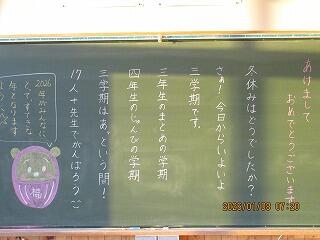 あけまして
おめでとうございます
冬休みはどうでしたか?
さぁ!今日からいよいよ
三学期です。
三年生のまとめの学期
四年生のじゅんびの学期
三学期はあっという間!
17人+先生でがんばろうね
2026
年がみんなに
とってすてきな
年となります
ように
福
2026/01/08 07:20